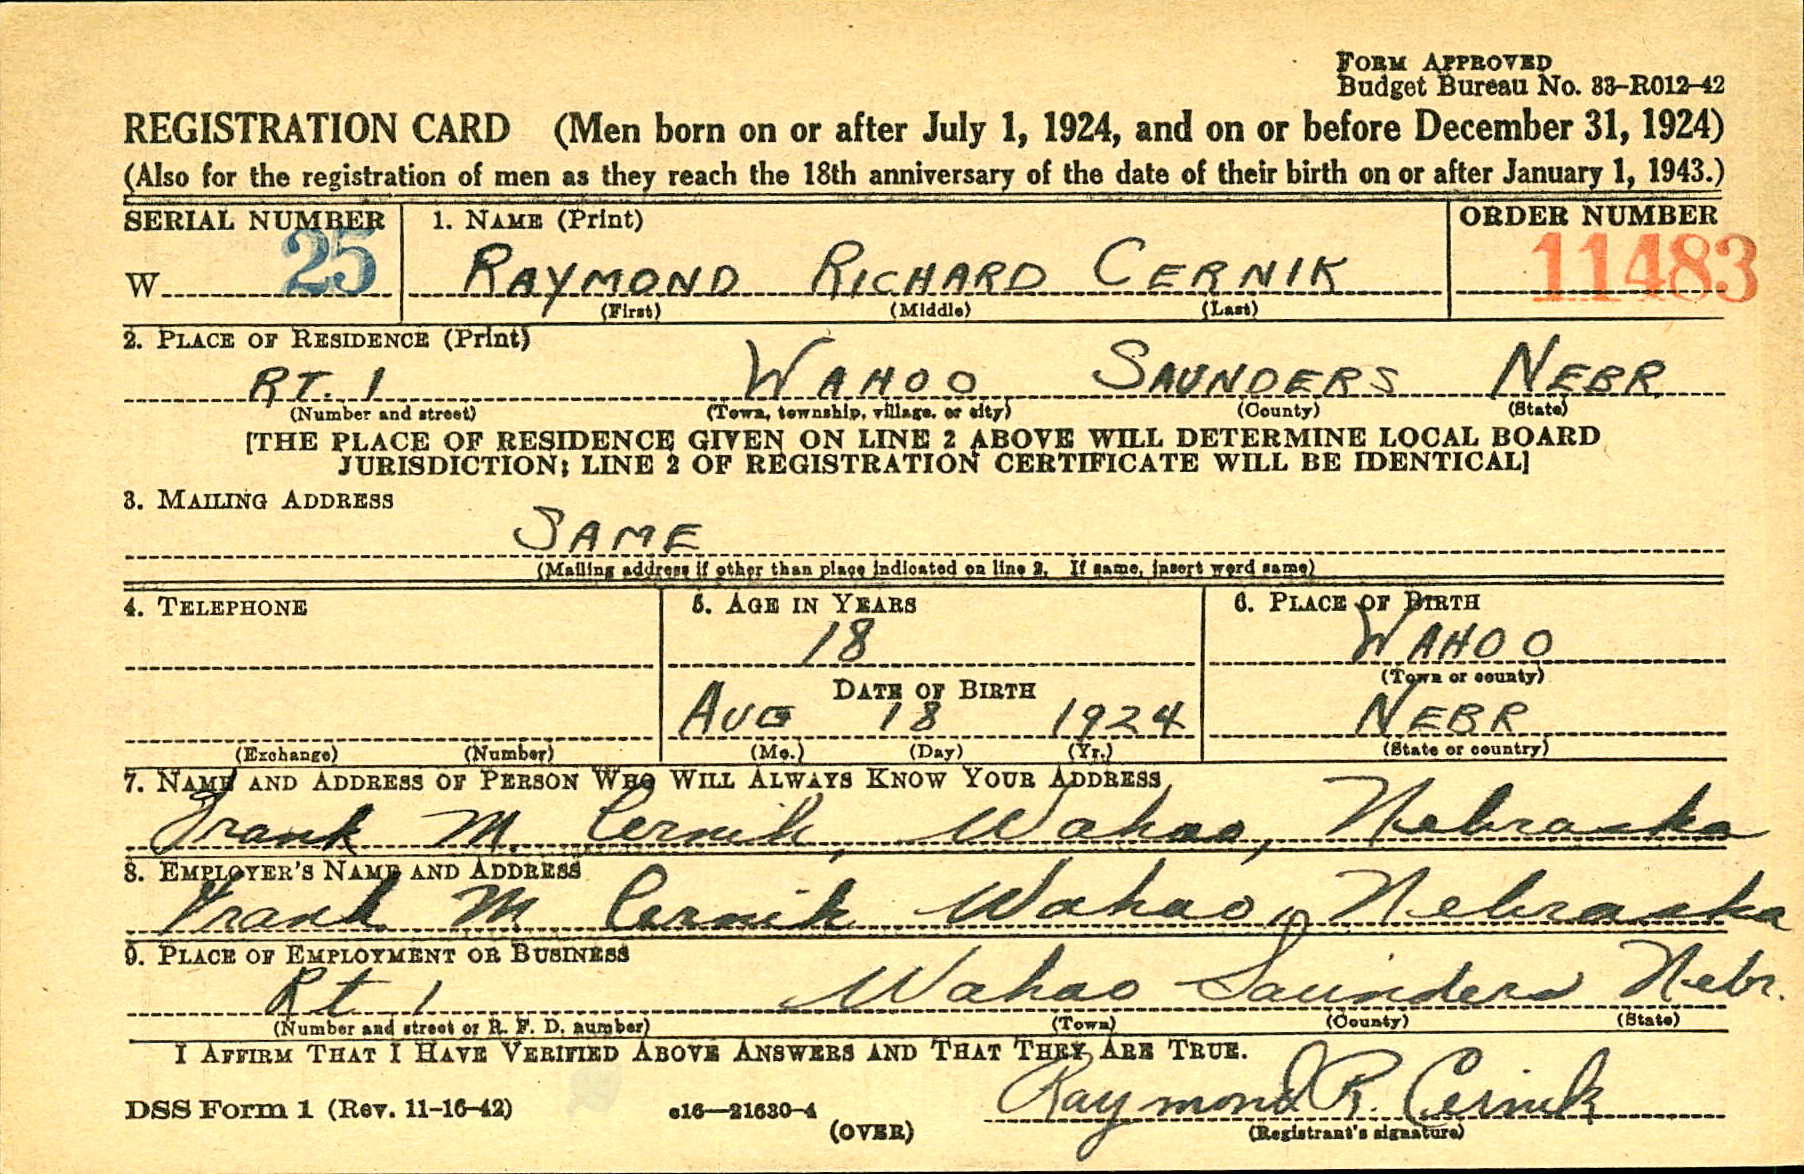 FORM APPROVED
Budget Bureau No. 33-R012-42
REGISTRATION CARD (Men born on or after July 1, 1924, and on or before December 31, 1924)
(Also for the registration of men as they reach the 18th anniversary of the date of their birth on or after January 1, 1943.)
SERIAL NUMBER 1. NAME (Print) ORDER NUMBER
W 25 RAYMOND RICHARD CERNIK 11483
(First) (Middle) (Last)
2. PLACE OF RESIDENCE (Print)
RT. 1 WAHOO SAUNDERS NEBR.
(Number and street) (Town, township, village, or city) (County) (State)
[THE PLACE OF RESIDENCE GIVEN ON LINE 2 ABOVE WILL DETERMINE LOCAL BOARD
JURISDICTION; LINE 2 OF REGISTRATION CERTIFICATE WILL BE IDENTICAL]
3. MAILING ADDRESS
SAME
(Mailing address if other than place indicated on line 2. If same, insert word same)
4. TELEPHONE 5. AGE IN YEARS 6. PLACE OF BIRTH
18 WAHOO
(Town or county)
DATE OF BIRTH
AUG 18 1924 NEBR
(Exchange) (Number) (Mo.) (Day) (Yr.) (State or country)
7. NAME AND ADDRESS OF PERSON WHO WILL ALWAYS KNOW YOUR ADDRESS
Frank M. Cernik, Wahoo, Nebraska
8. EMPLOYER'S NAME AND ADDRESS
Frank M Cernik Wahoo, Nebraska
9. PLACE OF EMPLOYMENT OR BUSINESS
Rt 1 Wahoo Saunders Nebr.
(Number and street or R. F. D. number) (Town) (County) (State)
I AFFIRM THAT I HAVE VERIFIED ABOVE ANSWERS AND THAT THEY ARE TRUE.
Raymond R. Cernik
DSS Form 1 (Rev. 11-16-42) c16—21630-4
(OVER) (Registrant's signature)